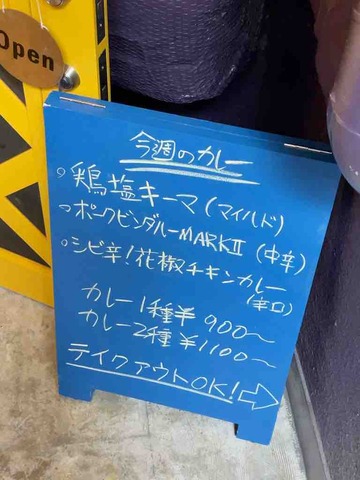 Open
今週のカレー
◦鶏塩キーマ(マイルド)
◦ポークビンダルーMARKⅡ(中辛)
◦シビ辛!花椒チキンカレー
(辛口)
カレー1種¥900〜
カレー2種¥1100〜
テイクアウトOK!⇨